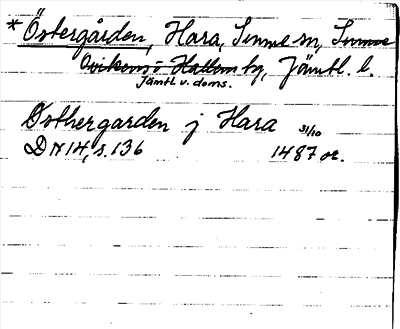 * Östergården, Hara, Sunne sn, Sunne
Ovikens o Hallens tg, Jämtl. l.
Jämtl. v. doms.
Østhergarden j Hara 31/10
DN 14, s. 136 1487 or.